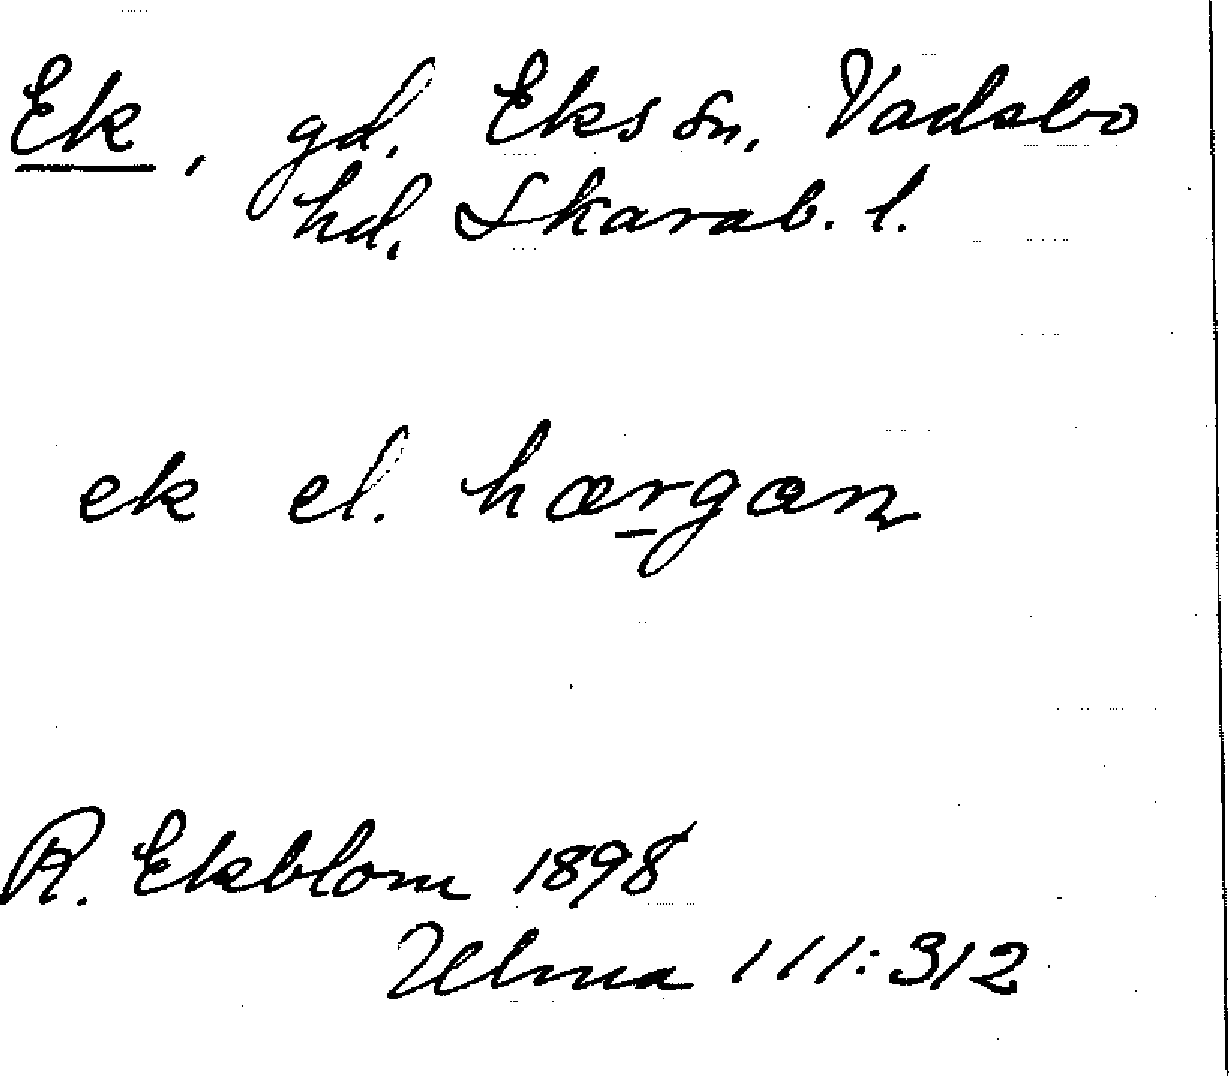 Ek, gd. Eks sn, Vadsbo
hd, Skarab. l.
ek el. hærgæn
R. Ekblom 1898
Ulma 111:312